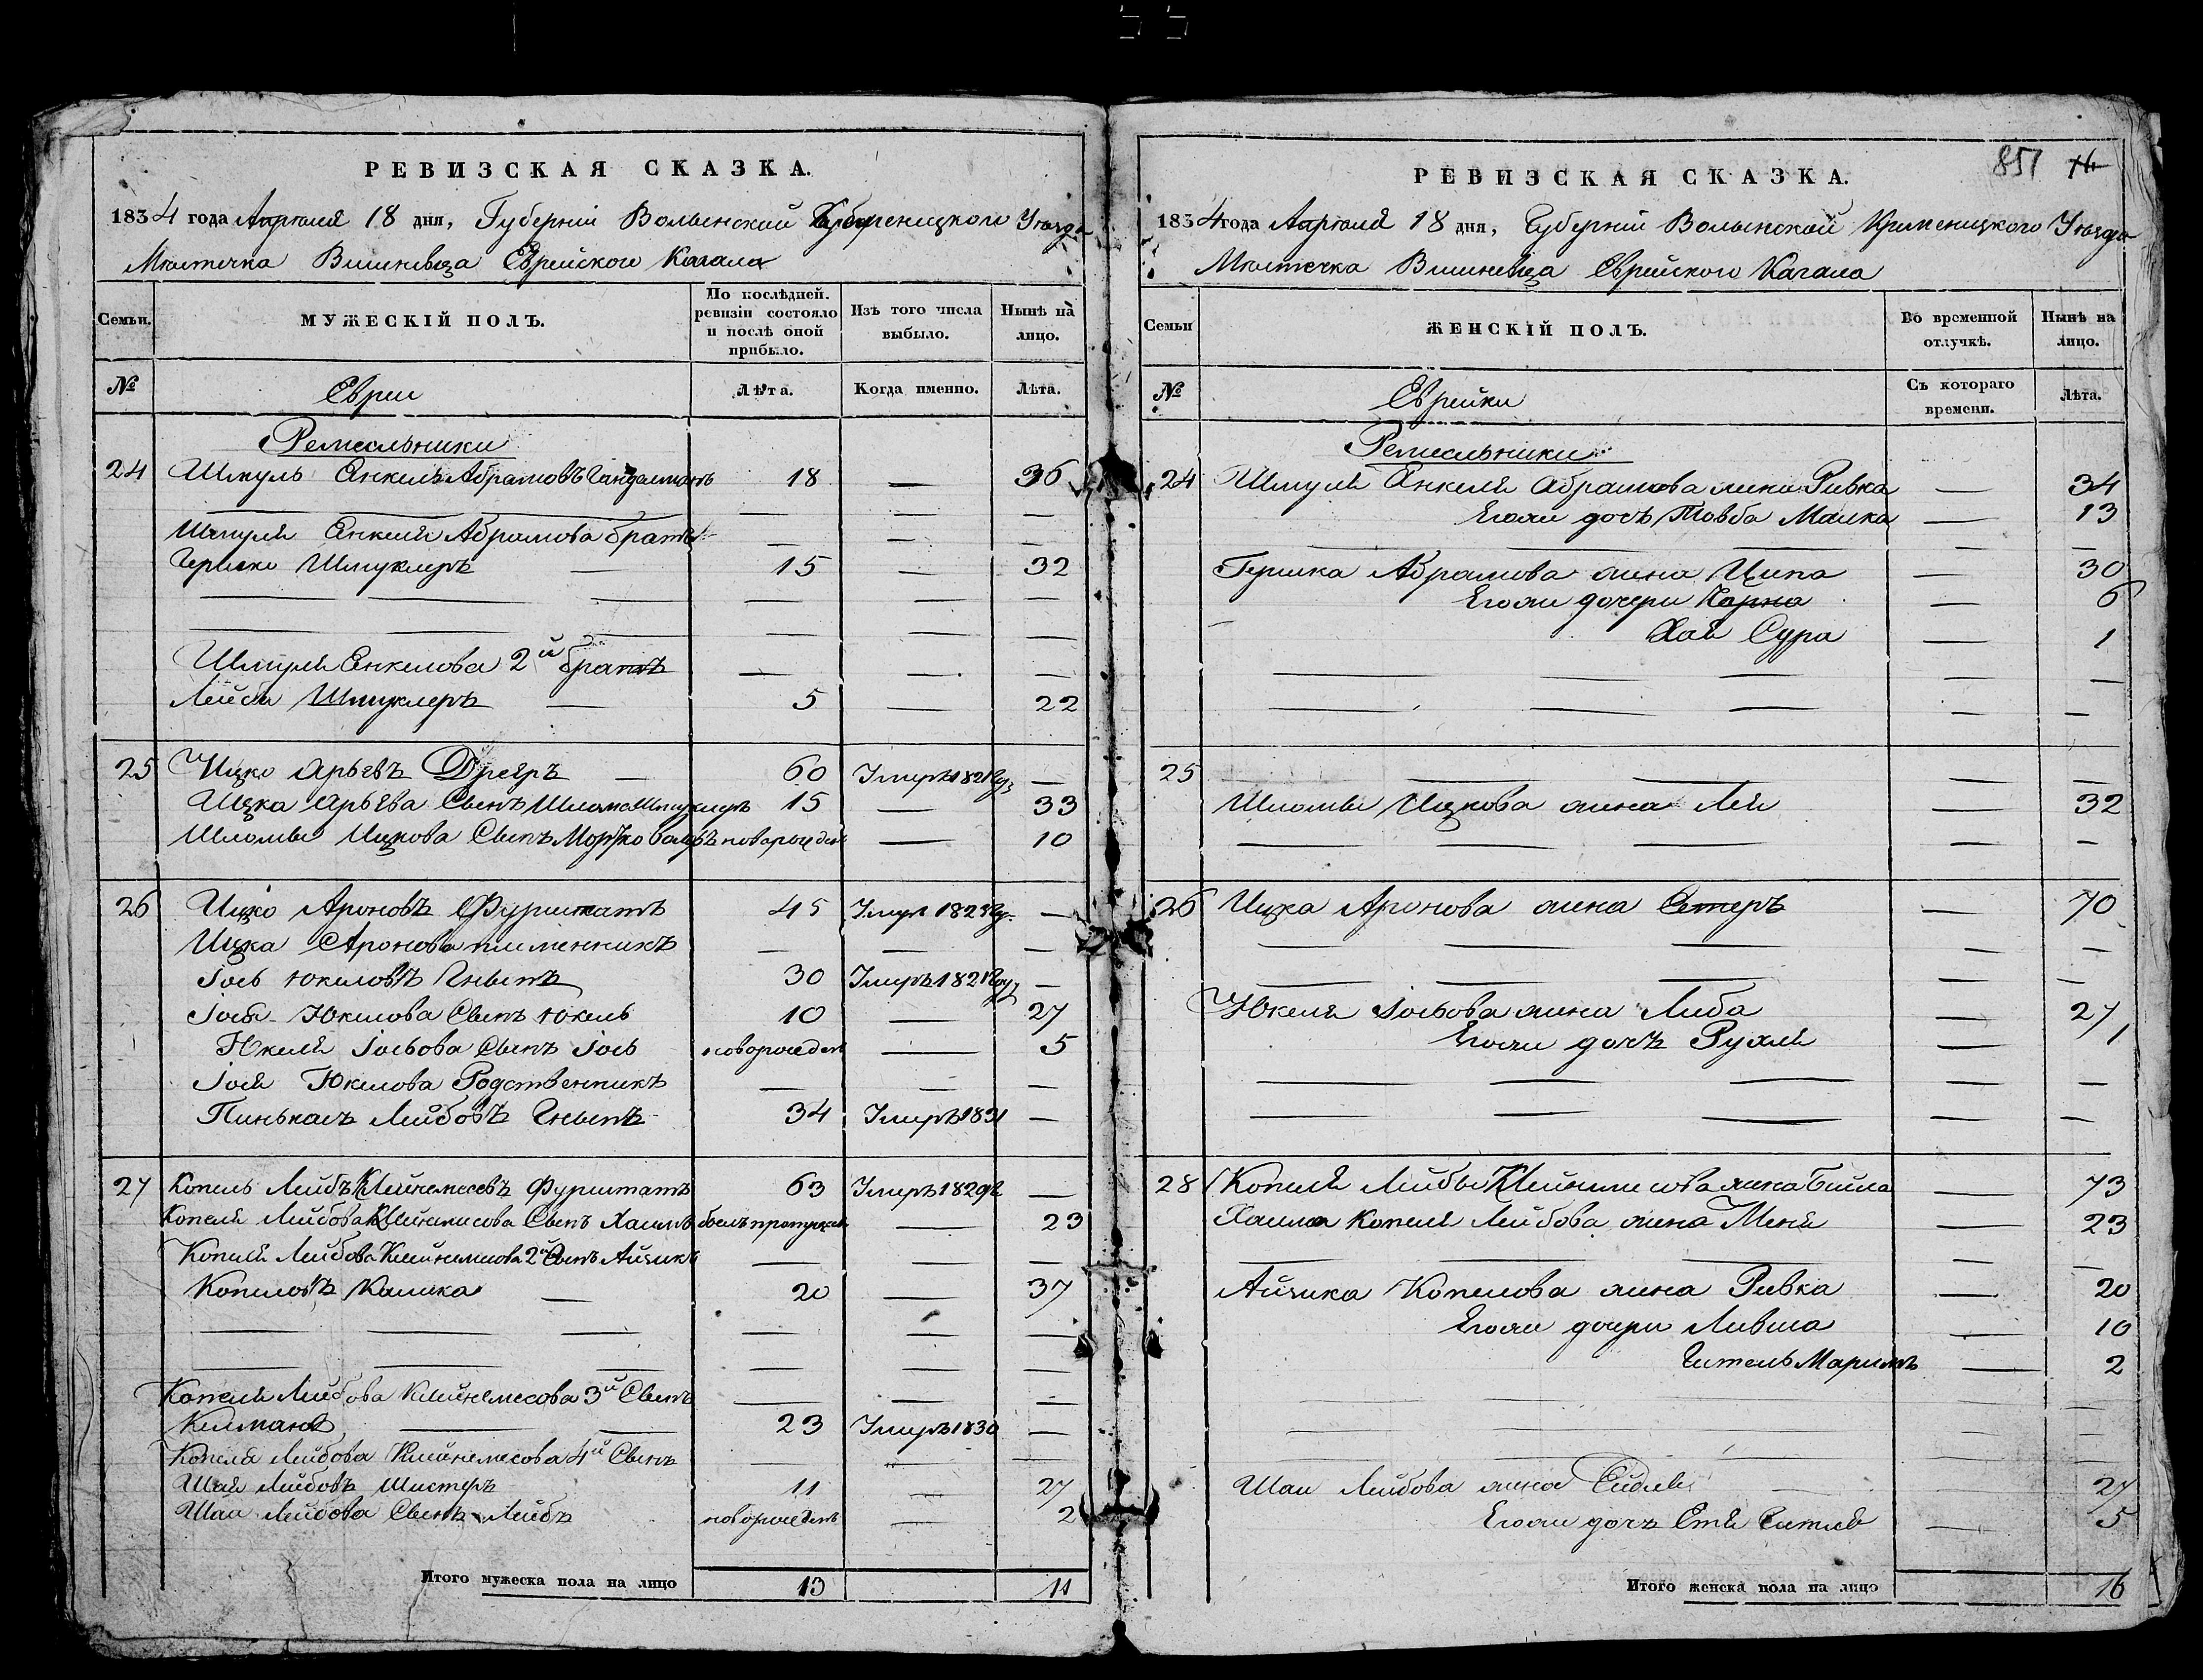 РЕВИЗСКАЯ СКАЗКА.
1834 года Апреля 18 дня, Губерніи Волынской Кременицкого Уезда
Местечка Вишневца Еврейского Кагала
Семьи.
МУЖЕСКІЙ ПОЛЪ.
По послѣдней. ревизіи состояло и послѣ оной прибыло.
Изъ того числа выбыло.
Нынѣ на лицо.
№
Евреи
Лѣта.
Когда именно.
Лѣта.
Ремесльники
24 Шмуль Енкель Абрамовъ 18 — 36
Шмуля Енкеля Абрамова братъ — — —
Гершко Шмуклеръ — 15 — 32
Шмуля Енкелова 2й братъ — — —
Лейба Шмуклеръ — 5 — 22
25 Ицко Арьевъ Дрееръ — 60 Умеръ 1821 —
Ицка Арьева Сынъ Шлома Шмуклеръ 15 — 33
Шломы Ицкова Сынъ новорожден — 10
26 Ицко Ароновъ Фурматъ 45 Умеръ —
Ицка Аронова племенникъ — — —
Іось Юкеловъ 30 Умеръ 1821 —
Іося Юкелова Сынъ Юкель 10 — 27
Юкеля Іосьова Сынъ Іось новорожден — 5
Іося Юкелова Родственникъ — — —
Пинькасъ Лейбовъ 34 Умеръ 1831 —
27 Копель Лейбъ 63 Умеръ 1829 —
Копеля Лейбова Сынъ Хаимъ былъ пропущенъ — 23
Копеля Лейбова 2й Сынъ Айзикъ — — —
Копеловъ — 20 — 37
Копеля Лейбова 3й Сынъ — — —
Кельманъ — 23 Умеръ 1830 —
Копеля Лейбова 4й Сынъ — — —
Шая Лейбовъ Шистеръ 11 — 27
Шаи Лейбова Сынъ Лейбъ новорожденъ — 2
Итого мужеска пола на лицо 13 11
851
РЕВИЗСКАЯ СКАЗКА.
1834 года Апреля 18 дня, Губерніи Волынской Кременицкого Уезда
Местечка Вишневца Еврейского Кагала
Семьи
ЖЕНСКІЙ ПОЛЪ.
Во временной отлучкѣ.
Нынѣ на лицо.
№
Еврейки
Съ котораго времени.
Лѣта.
Ремесльники
24 Шмуля Енкеля Абрамова жена Ривка — 34
Егожи дочъ Товба Малка — 13
Гершка Абрамова жена Ципа — 30
Егожи дочери — 6
Хая Сура — 1
25
Шломы Ицкова жена Лея — 32
26 Ицка Аронова жена Естеръ — 70
Юкеля Іосьова жена Либа — 27
Егожи дочъ Рухля — 1
28 Копеля Лейбы жена Бейла — 73
Хаима Копеля Лейбова жена Меня — 23
Айзика Копелова жена Ривка — 20
Егожи дочери — 10
Гитель Маримъ — 2
Шаи Лейбова жена — 27
Егожи дочъ — 5
Итого женска пола на лицо 16